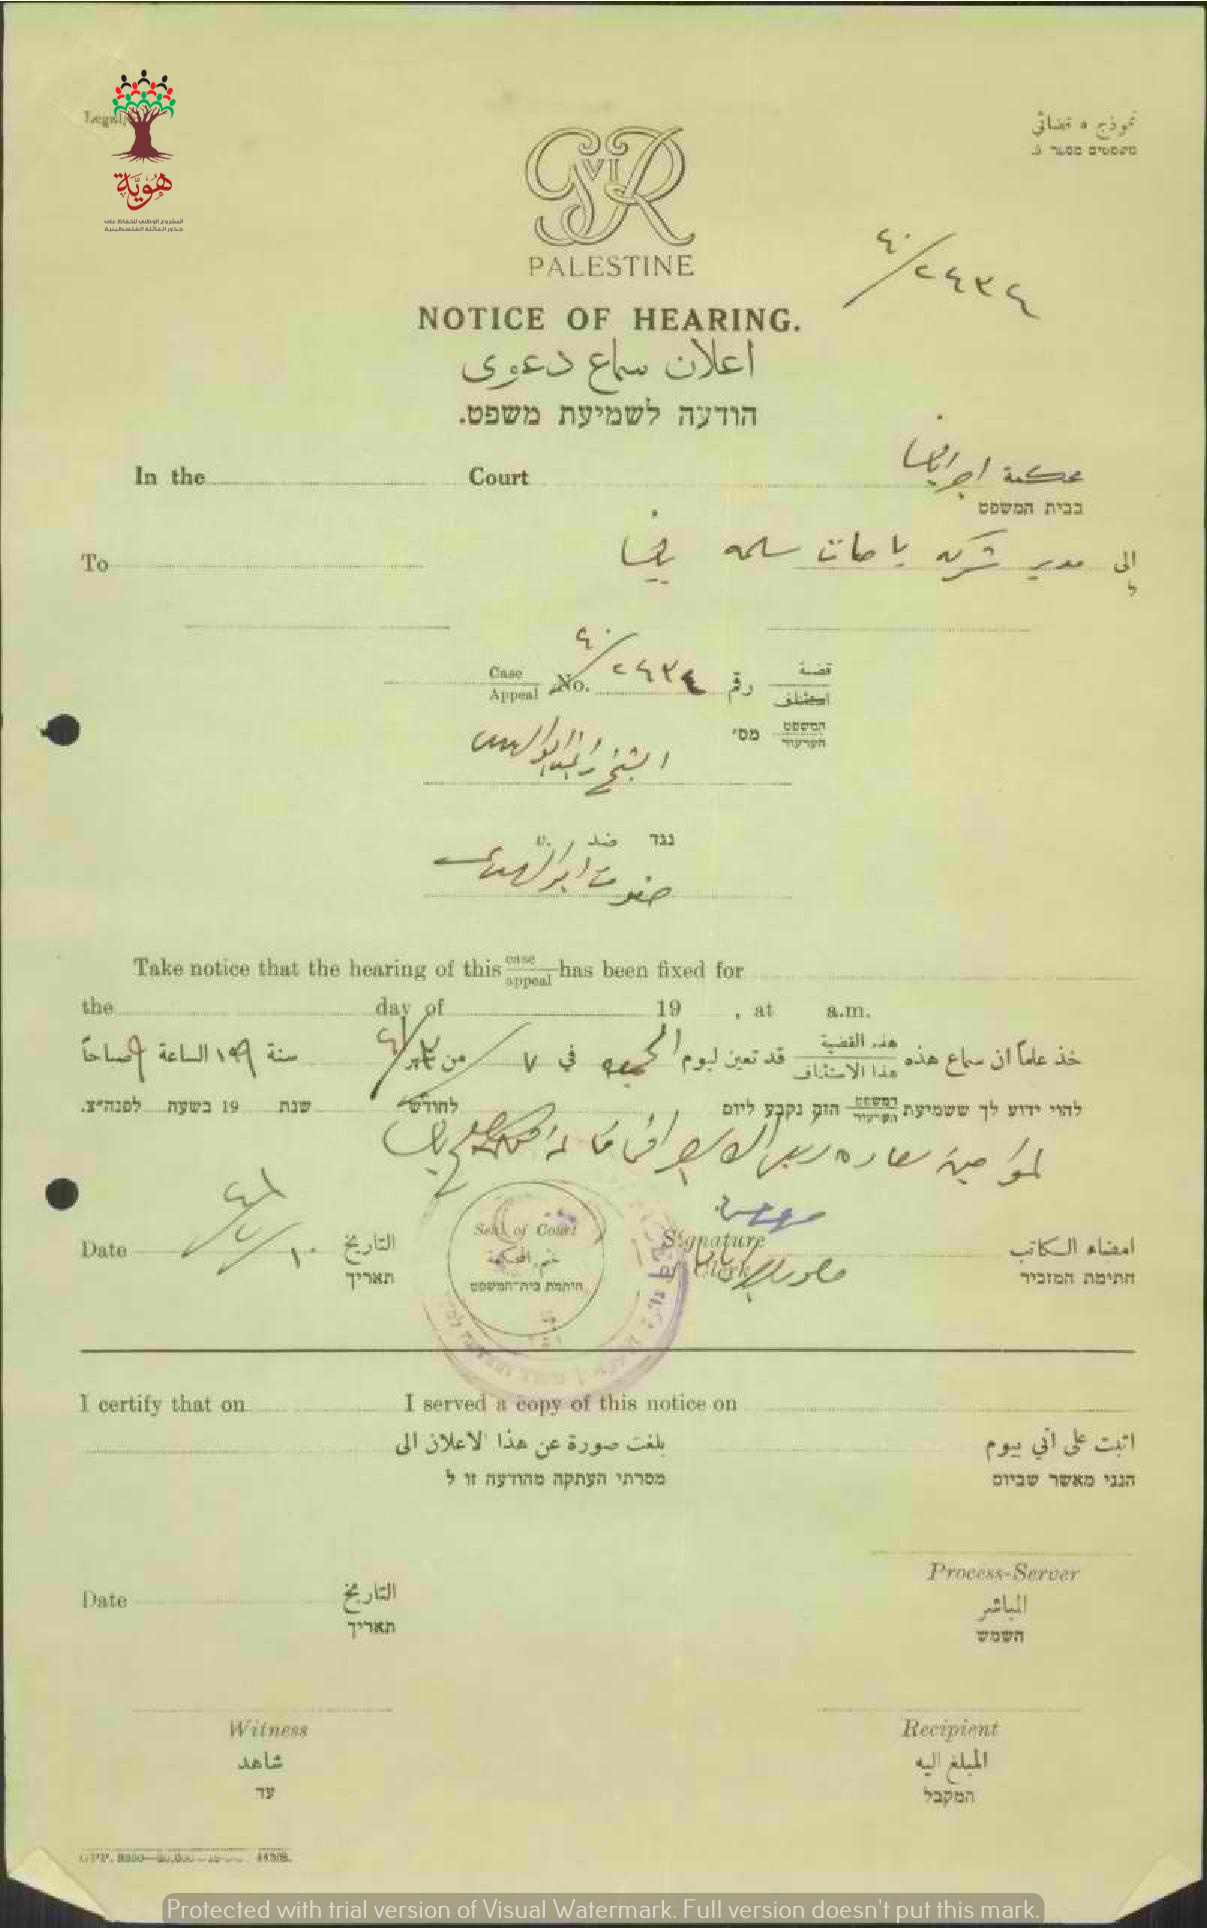 Legal
نموذج ٥ قضائي
משפטים מספר 5.
هُوِيَّة
المشروع الوطني للحفاظ على
جذور العائلة الفلسطينية
GVIR
PALESTINE
٤٠/٢٤٣٤
NOTICE OF HEARING.
اعلان سماع دعوى
הודעה לשמיעת משפט.
In the Court محكمة اجراء يافا
בבית המשפט
To الى مدير شركة باصات سلمه يافا
ל
Case Appeal No. ٤٠/٢٤٣٤ رقم قضية استئناف
המשפט הערעור מס'
الشيخ
v. ضد נגד
صفوت ابو الهدى
Take notice that the hearing of this case appeal has been fixed for
the day of 19 , at a.m.
خذ علماً ان سماع هذه هذه القضية هذا الاستئناف قد تعين ليوم في ٧ من سنة ١٩٩ الساعة صباحاً
להוי ידוע לך ששמיעת המשפט הערעור הזה נקבע ליום לחודש שנת 19 בשעה לפנה״צ.
Date التاريخ
תאריך
Seal of Court
ختم المحكمة
חותמת בית-המשפט
Signature of Clerk امضاء الكاتب
חתימת המזכיר
I certify that on I served a copy of this notice on
اثبت على اني بيوم بلغت صورة عن هذا الاعلان الى
הנני מאשר שביום מסרתי העתקה מהודעה זו ל
Process-Server
المباشر
השמש
Date التاريخ
תאריך
Witness
شاهد
עד
Recipient
المبلغ اليه
המקבל
Protected with trial version of Visual Watermark. Full version doesn't put this mark.